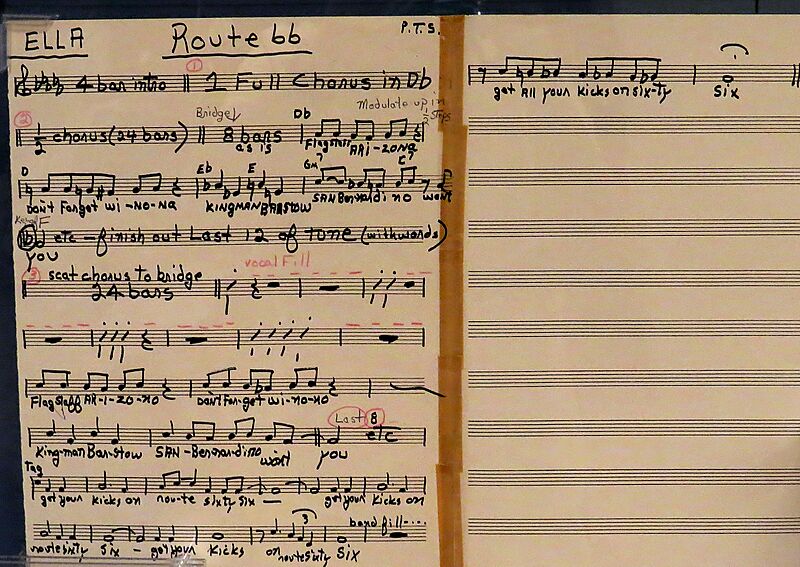 ELLA Route 66 P.T.S.
4 bar intro ① 1 Full Chorus in Db
② ½ chorus (24 bars) Bridge 8 bars as is Db Modulate up in ½ steps
Flagstaff ARi-ZONA
D Eb E Gm7 C7
Don't Forget Wi-NO-NA KINGMAN BARSTOW SAN Bernardi no wont
F
you etc - finish out Last 12 of Tune (with words)
③ scat chorus to bridge vocal Fill
24 bars
Flagstaff AR-i-zo-na Don't For-get wi-no-na
Last 8
King-man Bar-stow SAN-Bernar-dino wont you etc
Tag
get your kicks on rou-te sixty six — get your kicks on
band fill
route sixty six - get your kicks on route sixty six
get All your kicks on six-ty six